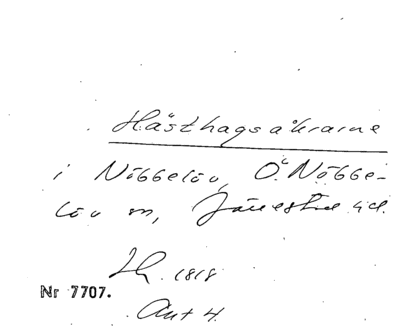 Hästhagsåkrarne
i Nöbbelöv, Ö. Nöbbe-
löv sn, Järrestad hd.
Lh. 1818
Nr 7707.
Akt 4.